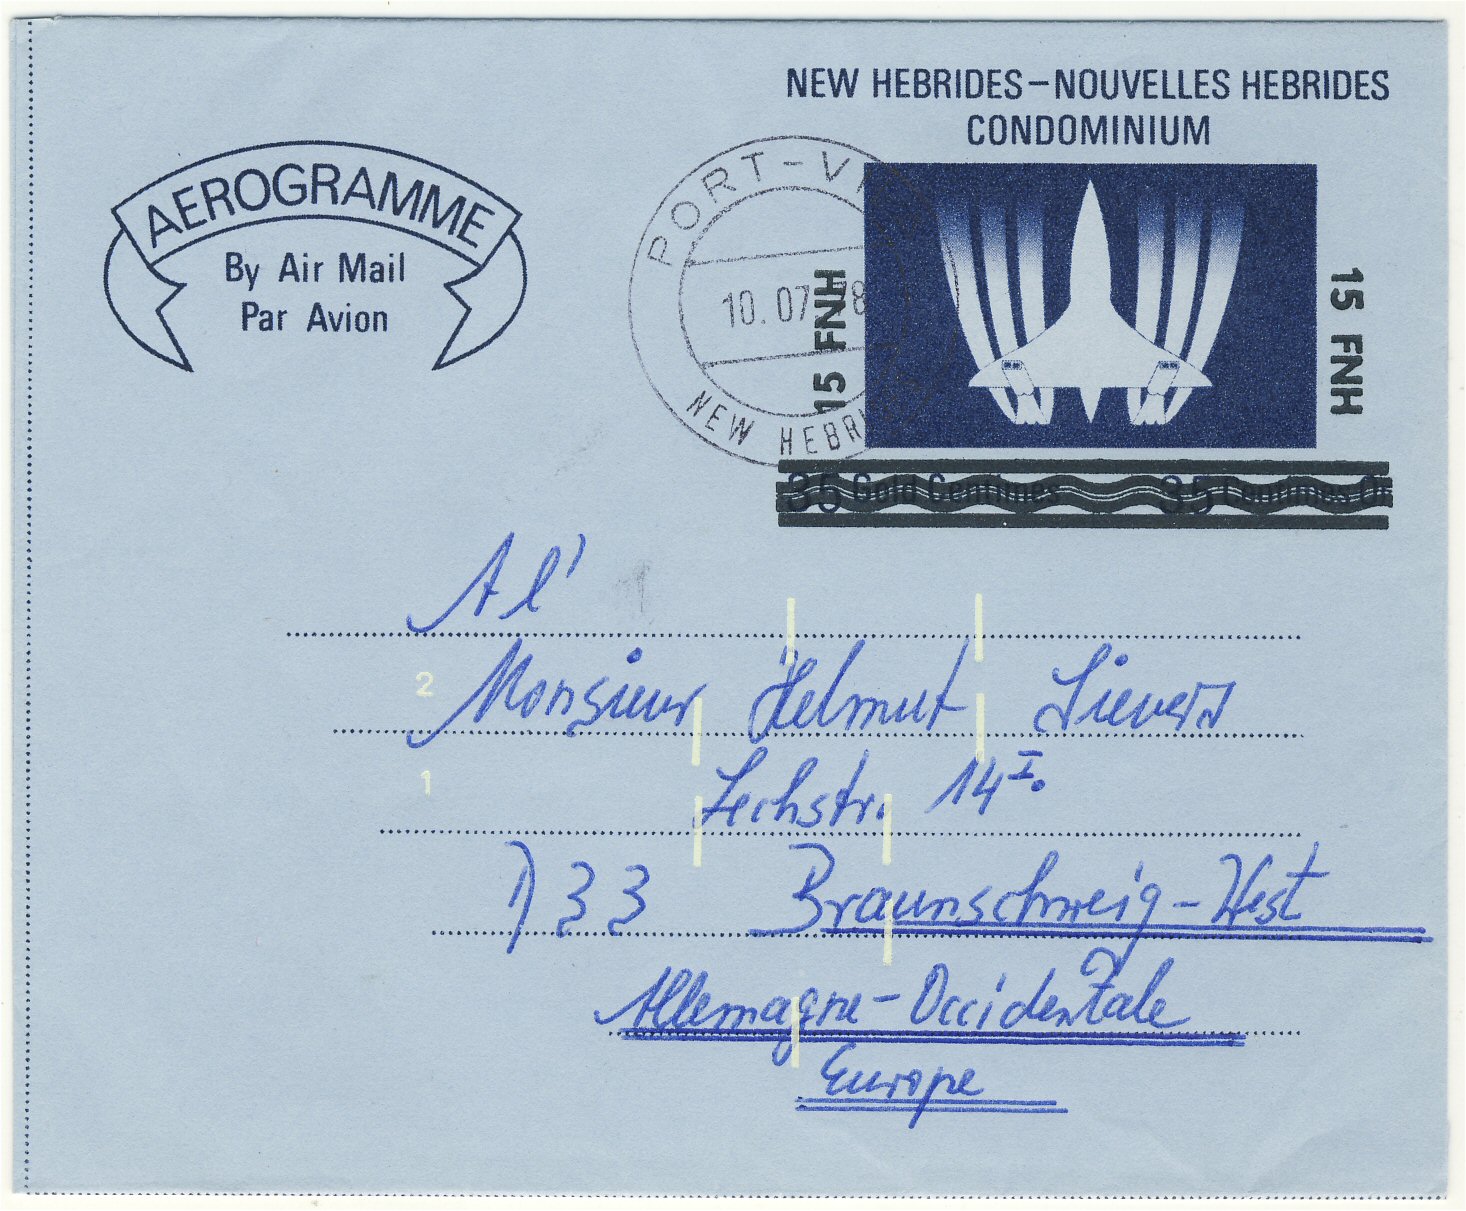 NEW HEBRIDES–NOUVELLES HEBRIDES
CONDOMINIUM
AEROGRAMME
By Air Mail
Par Avion
PORT-VI
10. 07 78
NEW HEBRI
15 FNH
15 FNH
35 Gold Centimes 35 Centimes Or
A l'
2
Monsieur Helmut Sievers
1
Lechstr. 14 I.
D 33 Braunschweig-West
Allemagne-Occidentale
Europe